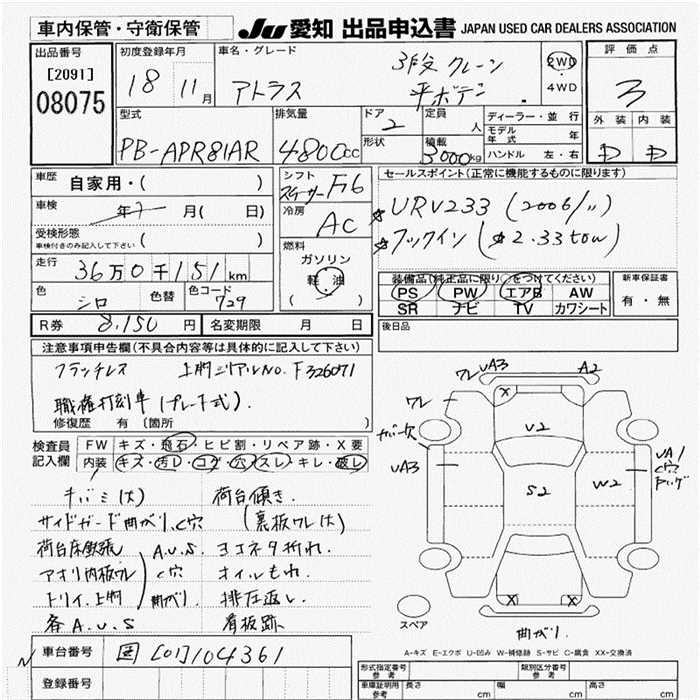 車内保管・守衛保管
JU 愛知 出品申込書 JAPAN USED CAR DEALERS ASSOCIATION
出品番号
[2091]
08075
初度登録年月
18 11月
車名・グレード
アトラス
3段 クレーン
平ボデー
2WD
4WD
評価点
3
外装 内装
D D
型式
PB-APR81AR
排気量
4800cc
ドア
2
形状
定員
人
積載
3000kg
ディーラー・並行
モデル年式 年
ハンドル 左・右
車歴
自家用・( )
車検
年 月( 日)
受検形態
車検付きのみ記入して下さい ( )
走行
36万0千151km
色
シロ
色替
色コード
729
シフト
F6
冷房
AC
燃料
ガソリン
軽・油
( )
セールスポイント(正常に機能するものに限ります)
URV233 (2006/11)
フックイン (2.33tow)
装備品(純正品に限り○をつけてください)
PS PW エアB AW
SR ナビ TV カワシート
新車保証書
有・無
後日品
R券 8,150円
名変期限 月 日
注意事項申告欄(不具合内容等は具体的に記入して下さい)
フランチレス 上物シリアルNo.F326071
職権打刻車(プレート式).
修復歴 有 (箇所 )
検査員記入欄
FW キズ・飛石・ヒビ割・リペア跡・X要
内装 キズ・汚レ・コゲ・穴・スレ・キレ・破レ
キバミ(大)
サイドガード曲がり、C穴
荷台床鉄張
アオリ内板ワレ
トリイ、上物
各A.U.S
A.U.S.
C穴
曲がり
荷台傾き.
(裏板ワレ(大)
ヨコネタ折れ.
オイルもれ.
排圧返し.
看板跡
ワレ
UA3
A2
ワレ
カバー欠
UA3
V2
S2
W2
UA1
C穴
スペア
曲がり.
A-キズ E-エクボ U-凹み W-補修跡 S-サビ C-腐食 XX-交換済
車台番号 国[01]104361
登録番号
形式指定番号
参考
類別区分番号
参考
車庫証明用
参考
長さ cm
幅 cm
高さ cm